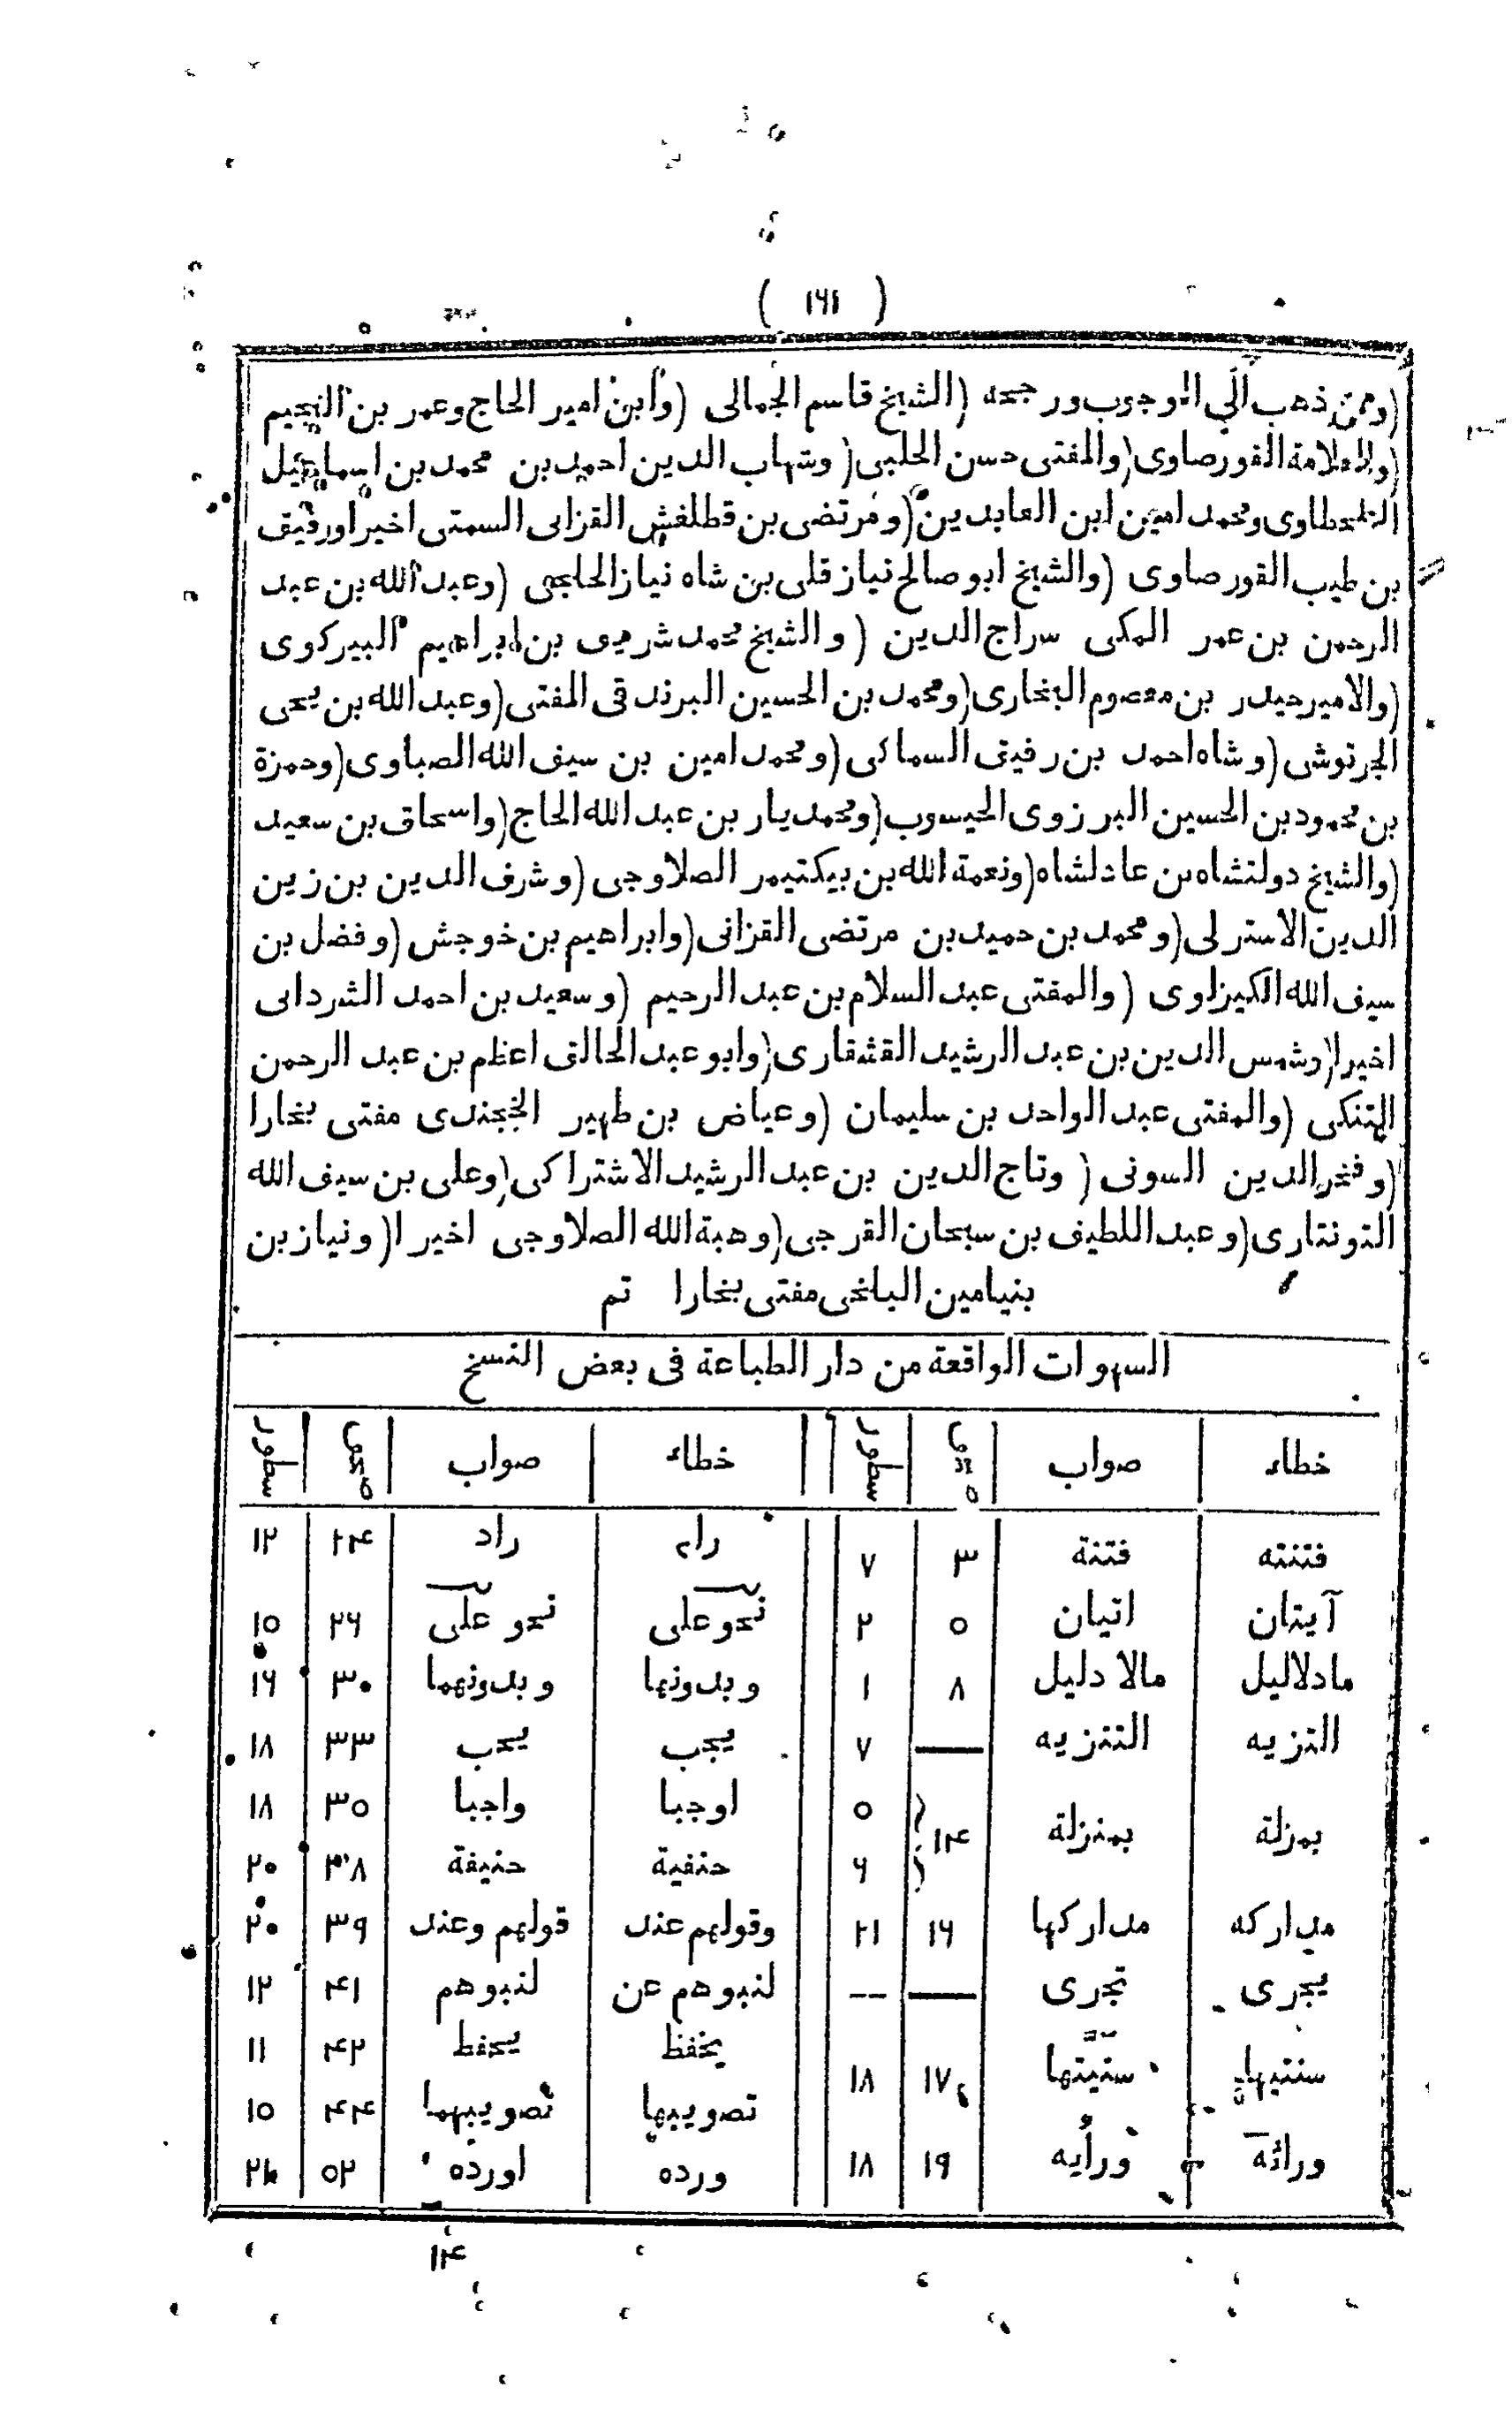 ( ۱۶۱ )
(وممن ذهب الى الوجوب ورجحه (الشيخ قاسم الجمالى (وابن امير الحاج وعمر بن النجيم
(والعلامة القورصاوى (والمفتى حسن الحلبى (وشهاب الدين احمد بن محمد بن اسماعيل
الطحطاوى ومحمد امين ابن العابدين (ومرتضى بن قطلغش القزانى السمتى اخيرا ورفيق
بن طيب القورصاوى (والشيخ ابو صالح نياز قلى بن شاه نياز الحاجى (وعبد الله بن عبد
الرحمن بن عمر المكى سراج الدين (والشيخ محمد شريف بن ابراهيم البيركوى
(والامير حيدر بن معصوم البخارى (ومحمد بن الحسين البرندقى المفتى (وعبد الله بن يحى
الجرتوشى (وشاه احمد بن رفيق السماكى (ومحمد امين بن سيف الله الصباوى (وحمزة
بن محمود بن الحسين البرزوى الحيسوب (ومحمد يار بن عبد الله الحاج (واسحاق بن سعيد
(والشيخ دولتشاه بن عادلشاه (ونعمة الله بن بيكتيمر الصلاوجى (وشرف الدين بن زين
الدين الاسترلى (ومحمد بن حميد بن مرتضى القزانى (وابراهيم بن خوجش (وفضل بن
سيف الله الكيزلوى (والمفتى عبد السلام بن عبد الرحيم (وسعيد بن احمد الشردانى
اخيرا (وشمس الدين بن عبد الرشيد القشقارى (وابو عبد الخالق اعظم بن عبد الرحمن
التنكى (والمفتى عبد الواحد بن سليمان (وعياض بن طهير الخجندى مفتى بخارا
(وفخر الدين السونى (وتاج الدين بن عبد الرشيد الاشتراكى (وعلى بن سيف الله
التونتارى (وعبد اللطيف بن سبحان القرجى (وهبة الله الصلاوجى اخيرا (ونياز بن
بنيامين البلخى مفتى بخارا تم
السهوات الواقعة من دار الطباعة فى بعض النسخ
خطاء صواب صحيف سطور خطاء صواب صحيف سطور
فتنته فتنة ۳ ۷ راء راد ۲۴ ۱۲
آيتان اتيان ۵ ۲ نحو على نحو على ۲۶ ۱۵
مادلاليل مالا دليل ۸ ۱ وبدونها وبدونهما ۳۰ ۱۶
التزيه التنزيه — ۷ يجب يحب ۳۳ ۱۸
بمزلة بمنزلة ۱۴ ۵ ۶ اوجبا واجبا ۳۵ ۱۸
حنفية حنيفة ۳۸ ۲۰
مداركه مداركها ۱۶ ۲۱ وقولهم عند قولهم وعند ۳۹ ۲۰
يجرى تجرى — -- لنبوهم عن لنبوهم ۴۱ ۱۲
سنتيها سنيتها ۱۷ ۱۸ يخفظ يحفظ ۴۲ ۱۱
تصويبها تصويبهما ۴۴ ۱۵
ورائه ورأيه ۱۹ ۱۸ ورده اورده ۵۲
۱۴